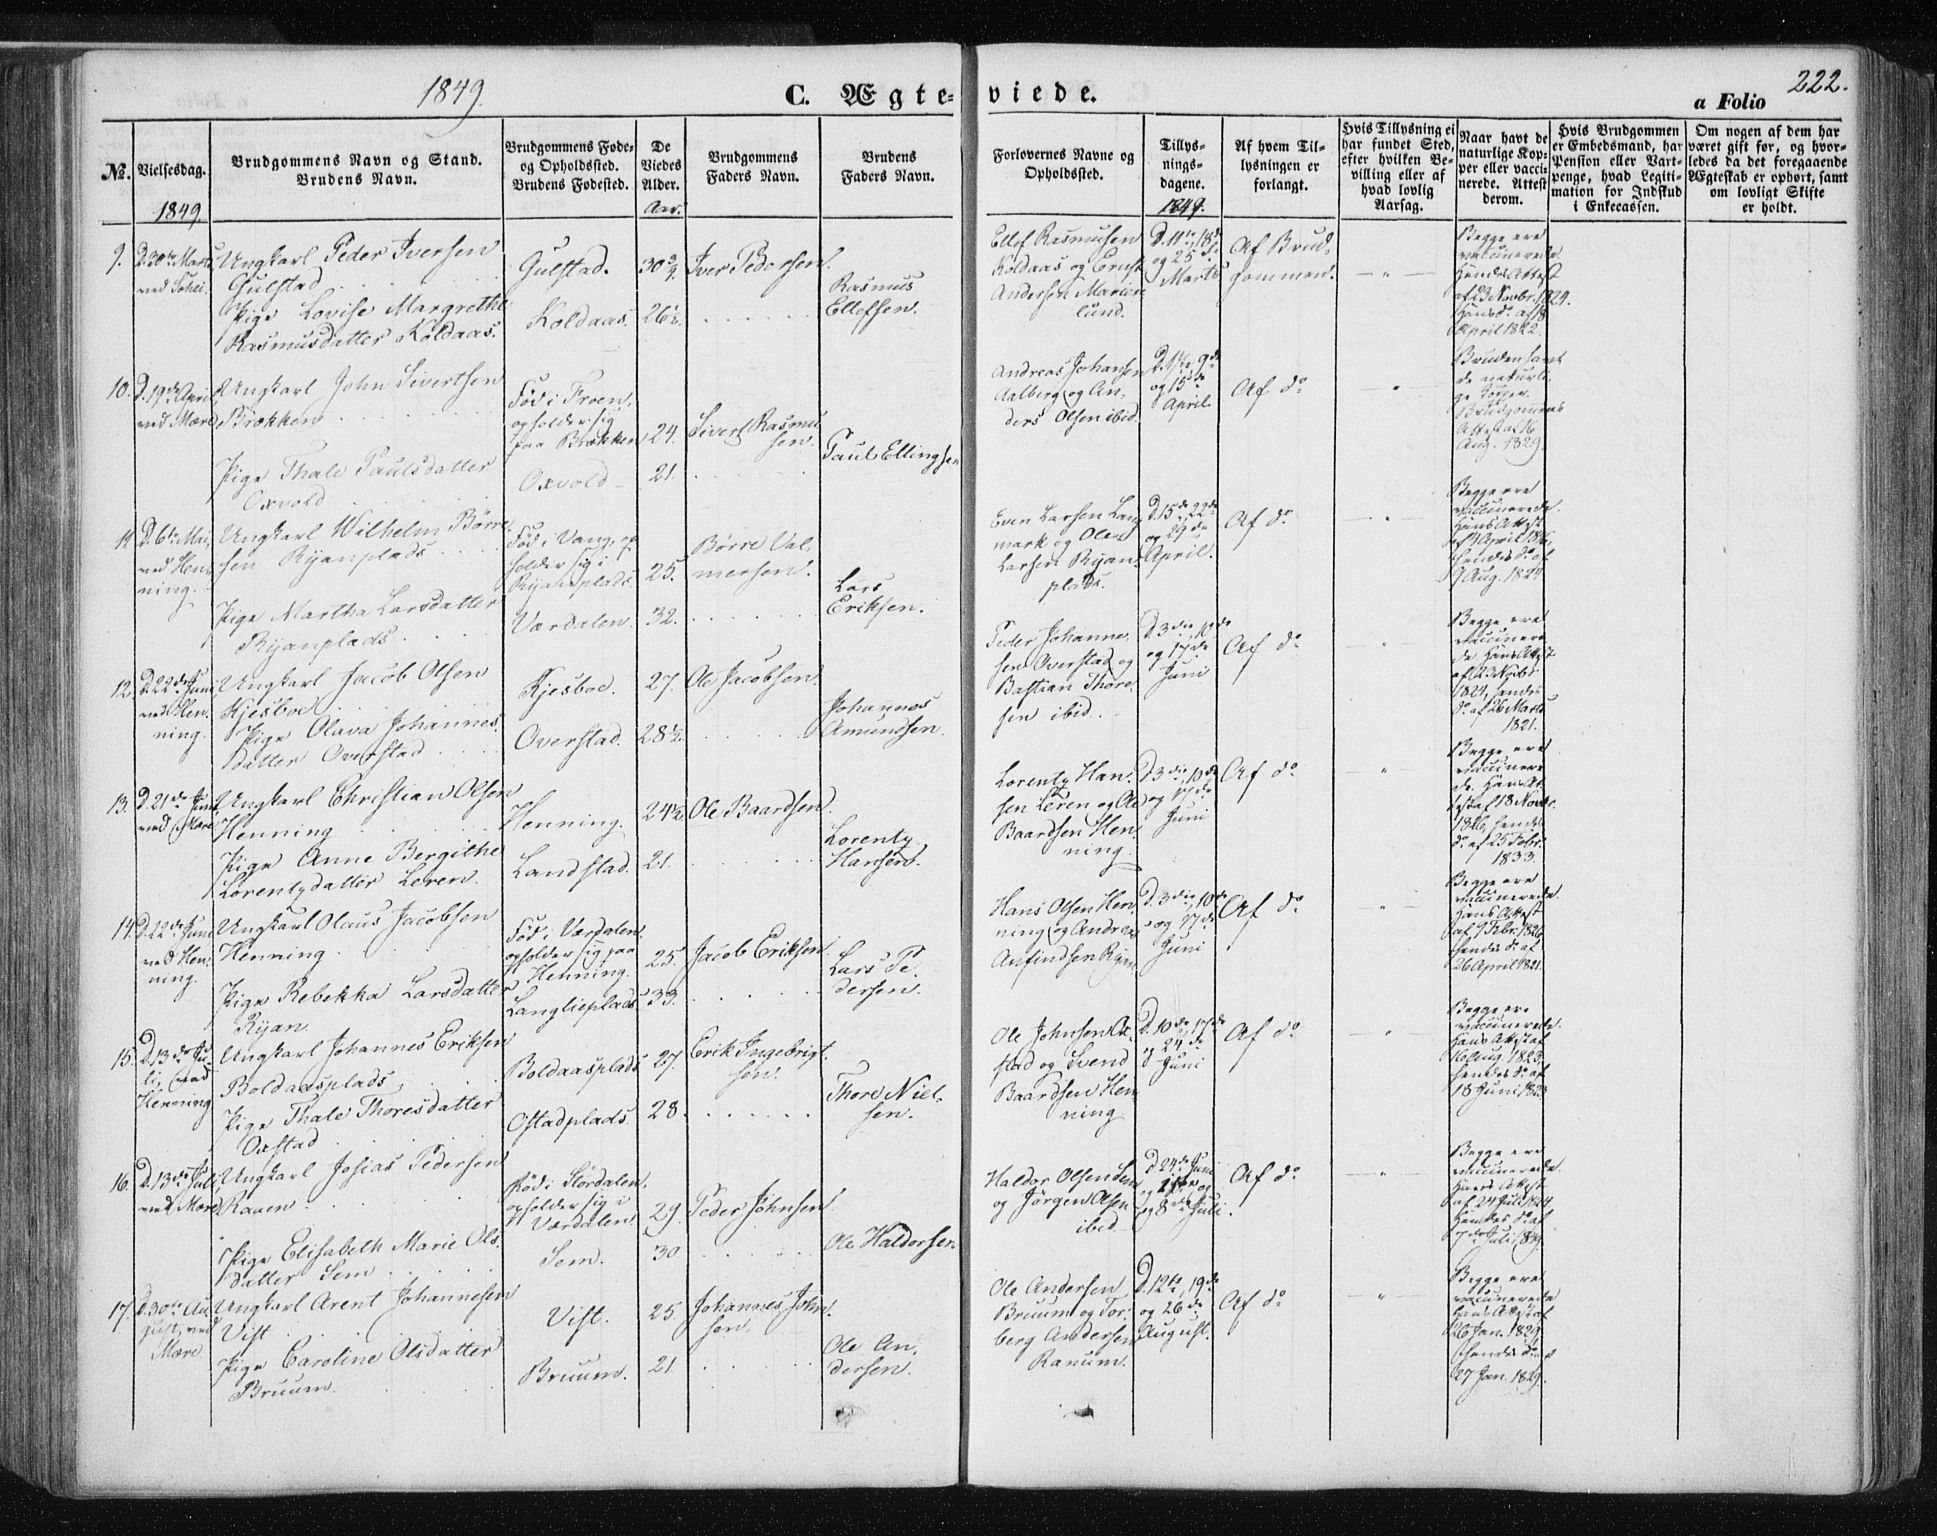 1849.
C. Ægteviede.
222.
a Folio
No.
Vielsesdag.
Brudgommens Navn og Stand.
Brudens Navn.
Brudgommens Føde-
og Opholdssted.
Brudens Fødested.
De
Viedes
Alder.
Brudgommens
Faders Navn.
Brudens
Faders Navn.
Forlovernes Navne og
Opholdssted.
Tillys-
nings-
dagene.
Af hvem Til-
lysningen er
forlangt.
Hvis Tillysning ei
har fundet Sted,
efter hvilken Be-
villing eller af
hvad lovlig
Aarsag.
Naar havt de
naturlige Kop-
per eller vacci-
nerede. Attest
derom.
Hvis Brudgommen
er Embedsmand, har
Pension eller Vart-
penge, hvad Legiti-
mation for Indskud
i Enkecassen.
Om nogen af dem har
været gift før, og hvor-
ledes da det foregaaende
Ægteskab er ophørt, samt
om lovligt Skifte
er holdt.
1849
Aar.
1849.
9.
D. 30te Marts
ved
Ungkarl Peder Iversen
Gulstad
Pige Lovise Margrethe
Rasmusdatter Koldaas.
Gulstad.
Koldaas.
30
26½.
Iver Pedersen.
Rasmus
Ellefsen.
Ellef Rasmusen
Koldaas og Ernst
Andersen Marien
lund.
D. 11te, 18de
og 25de
Marts
Af Brud-
gommen.
Begge ere
vaccinerede.
Hendes Attest
af 23 Novbr. 1824.
Hans do. af 18
April 1822.
10.
D. 19de April
ved Mære
Ungkarl John Sivertsen
Brækken
Pige Thale Paulsdatter
Oxvold
Fød i Froen,
opholder sig
paa Brækken
Oxvold
24.
21.
Sivert Rasmu
sen.
Paul Ellingsen
Andreas Johansen
Aalberg og An-
ders Olsen ibid.
D. 1ste, 9de
og 15de
April.
Af do
Bruden havt
de naturli-
ge Kopper.
Brudgommens
Attest af 16
Aug. 1829.
11
D. 6te Mai,
ved Hen-
ning.
Ungkarl Wilhelm Børre-
sen Ryanplads
Pige Martha Larsdatter
Ryanplads
Fød i Vang, op
holder sig i
Ryanplads
Værdalen.
25.
32.
Børre Val,
mersen.
Lars
Eriksen.
Even Larsen Lang
mark og Ole
Larsen Ryan-
plads.
D. 15de, 22de
og 29de
April.
Af do
Begge ere
vaccinerede.
Hans Attest
af 4 April 1816,
hendes do. af
7 Aug. 1824.
12.
D. 22de Juni,
ved Hen-
ning.
Ungkarl Jacob Olsen
Kjesboe
Pige Olava Johannes-
datter Overstad
Kjesboe.
Overstad.
27.
28½.
Ole Jacobsen.
Johannes
Amundsen.
Peder Johanne-
sen Overstad og
Bastian Thore-
sen ibid.
D. 3die, 10de
og 17de
Juni
Af do
Begge ere
vaccinere
de. Hans Attest
af 23 Novbr
1824, hendes
do. af 26 Marts
1821.
13.
D. 21de Juni,
ved Mære
Ungkarl Christian Olsen
Henning
Pige Anne Bergithe
Lorentzdatter Leren.
Henning.
Landstad.
24½.
21.
Ole Baardsen.
Lorentz
Hansen.
Lorentz Han-
sen Leren og Ole
Baardsen Hen-
ning.
D. 3die, 10de
og 17de
Juni
Af do
Begge ere
vaccinere
de. Hans At-
test af 18 Novbr.
1826, hendes
do. af 25 Febr.
1833.
14.
D. 22de Juni
ved Hen-
ning.
Ungkarl Olaus Jacobsen
Henning.
Pige Rebekka Larsdatter
Ryan
Fød i Værdalen
opholder sig paa
Henning.
Langlieplads
25.
33.
Jacob Eriksen.
Lars Pe-
dersen.
Hans Olsen Hen-
ning og Andreas
Anfindsen Ryan
D. 3die, 10de
og 17de
Juni
Af do
Begge ere
vaccinerede.
Hans Attest
af 9 Febr. 1826,
hendes do. af
26 April 1821.
15.
D. 13de Ju-
li, ved
Henning
Ungkarl Johannes Eriksen
Boldaasplads
Pige Thale Thoresdatter
Oxstad
Boldaasplads
Ostadplads
27.
28.
Erik Ingebrigt-
sen.
Thore Niel-
sen.
Ole Johnsen Ox-
stad og Svend
Baardsen Hen
ning
D. 10de, 17de
og 24de
Juni
Af do
Begge ere
vaccinerede.
Hans Attest af
16 Aug. 1823,
hendes do. af
18 Juni 1823
16.
D. 13de Juli
ved Mære
Ungkarl Josias Pedersen
Raaen
Pige Elisabeth Marie Ols-
datter Sem
Fød i Størdalen,
opholder sig i
Værdalen.
Sem.
29.
30
Peder Johnsen
Ole Haldorsen
Haldor Olsen Sem
og Jørgen Olsen
ibid
D. 24de Juni
og 8de Juli.
Af do
Begge ere
vaccinerede.
Hans Attest
af 24 Juli 1824
Hendes do. af
Juli 1849.
17.
D. 30te Au-
gust, ved
Mære
Ungkarl Arent Johannesen
Vist
Pige Caroline Olsdatter
Bruum.
Vist.
Bruum.
25.
21
Johannes John-
sen.
Ole An-
dersen.
Ole Andersen
Bruum og Tor-
berg Andersen
Ranum.
D. 12te, 19de
og 26de
August.
Af do
Begge ere
vaccinerede
Hans Attest af
26 Jan. 1829,
hendes do. af
27 Jan. 1829.